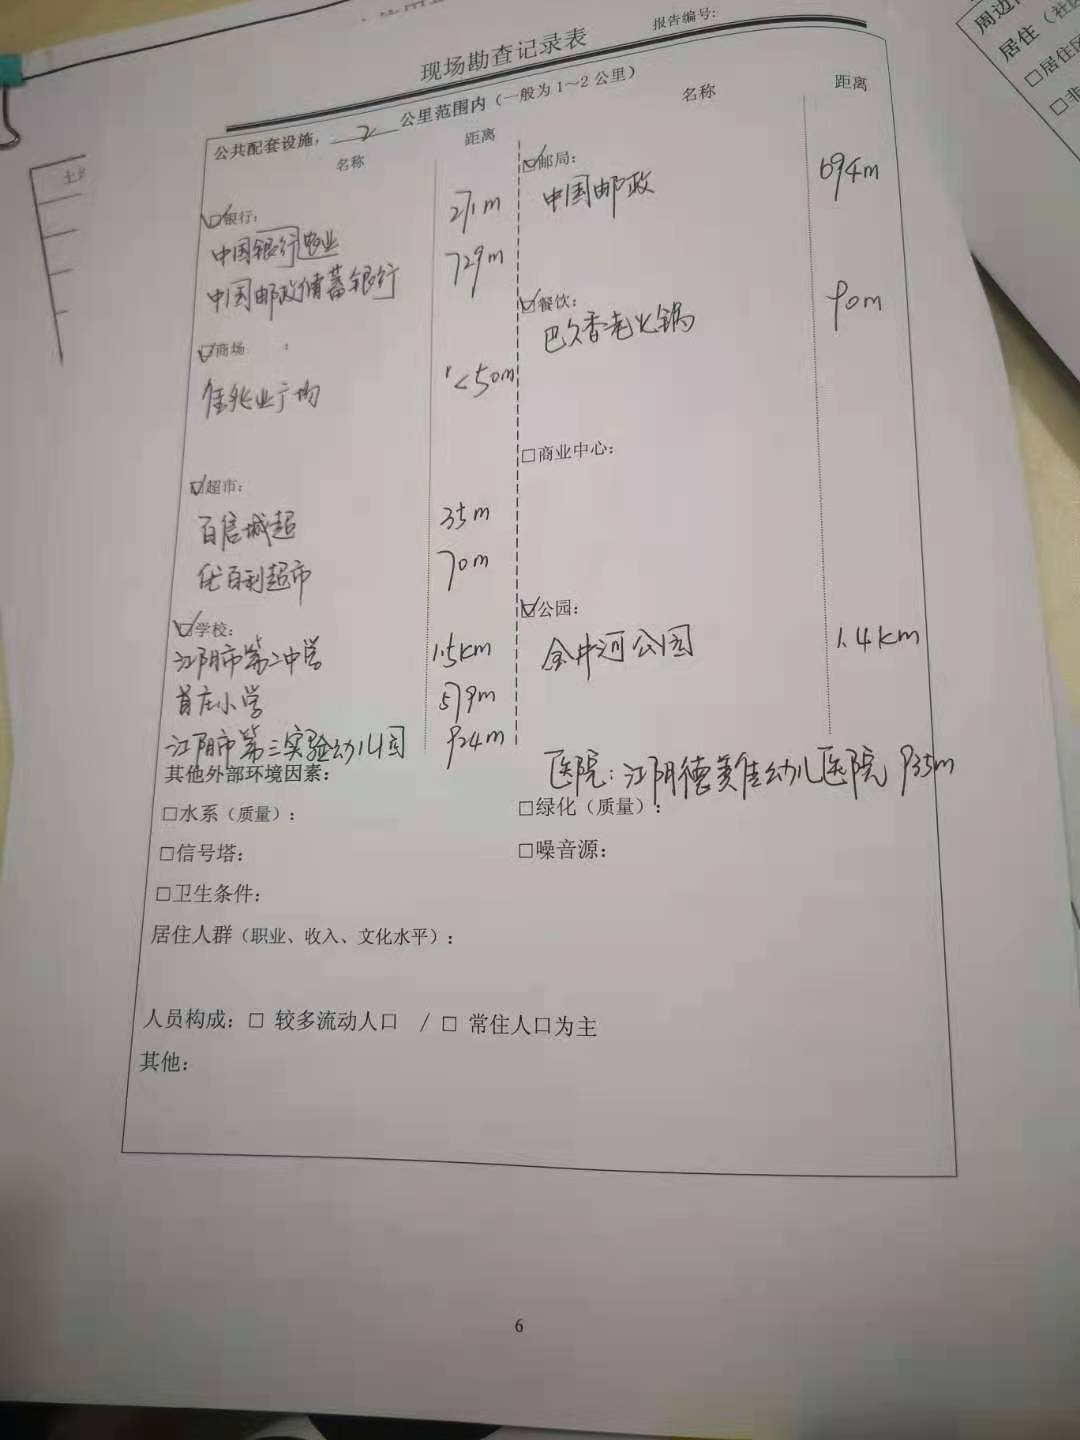 现场勘查记录表
报告编号:
公共配套设施, 2 公里范围内(一般为1~2公里)
名称 距离 名称 距离
☑银行:
中国银行农业 271m
中国邮政储蓄银行 729m
☑商场 :
佳兆业广场 <50m
☑超市:
百信城超 35m
优百利超市 70m
☑学校:
江阴市第二中学 1.5km
首庄小学 579m
江阴市第三实验幼儿园 924m
☑邮局:
中国邮政 694m
☑餐饮:
巴久香老火锅 90m
□商业中心:
☑公园:
金井河公园 1.4km
医院:江阴德美佳幼儿医院 935m
其他外部环境因素:
□水系(质量): □绿化(质量):
□信号塔: □噪音源:
□卫生条件:
居住人群(职业、收入、文化水平):
人员构成:□ 较多流动人口 / □ 常住人口为主
其他:
6
周边
居住(社区
□居住区
□非